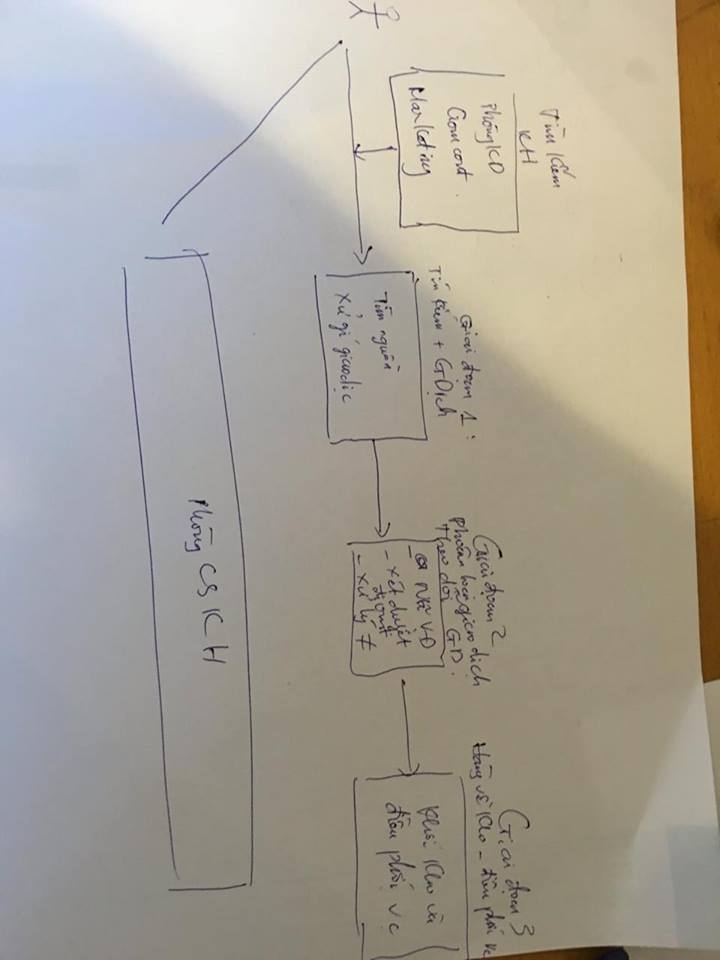 Tìm kiếm
KH
Phòng KD
Gom cont
Marketing
Giai đoạn 1:
Tìm kiếm + GDịch
Tìm nguồn
Xử giá giao dịc
Giai đoạn 2
giao dịch
Theo dõi GD.
- Nhà VĐ
- Xét duyệt
- Xử lý ≠
Giai đoạn 3
Hàng về Kho - điều phối vc
Khối Kho và
điều phối vc
Phòng CSKH